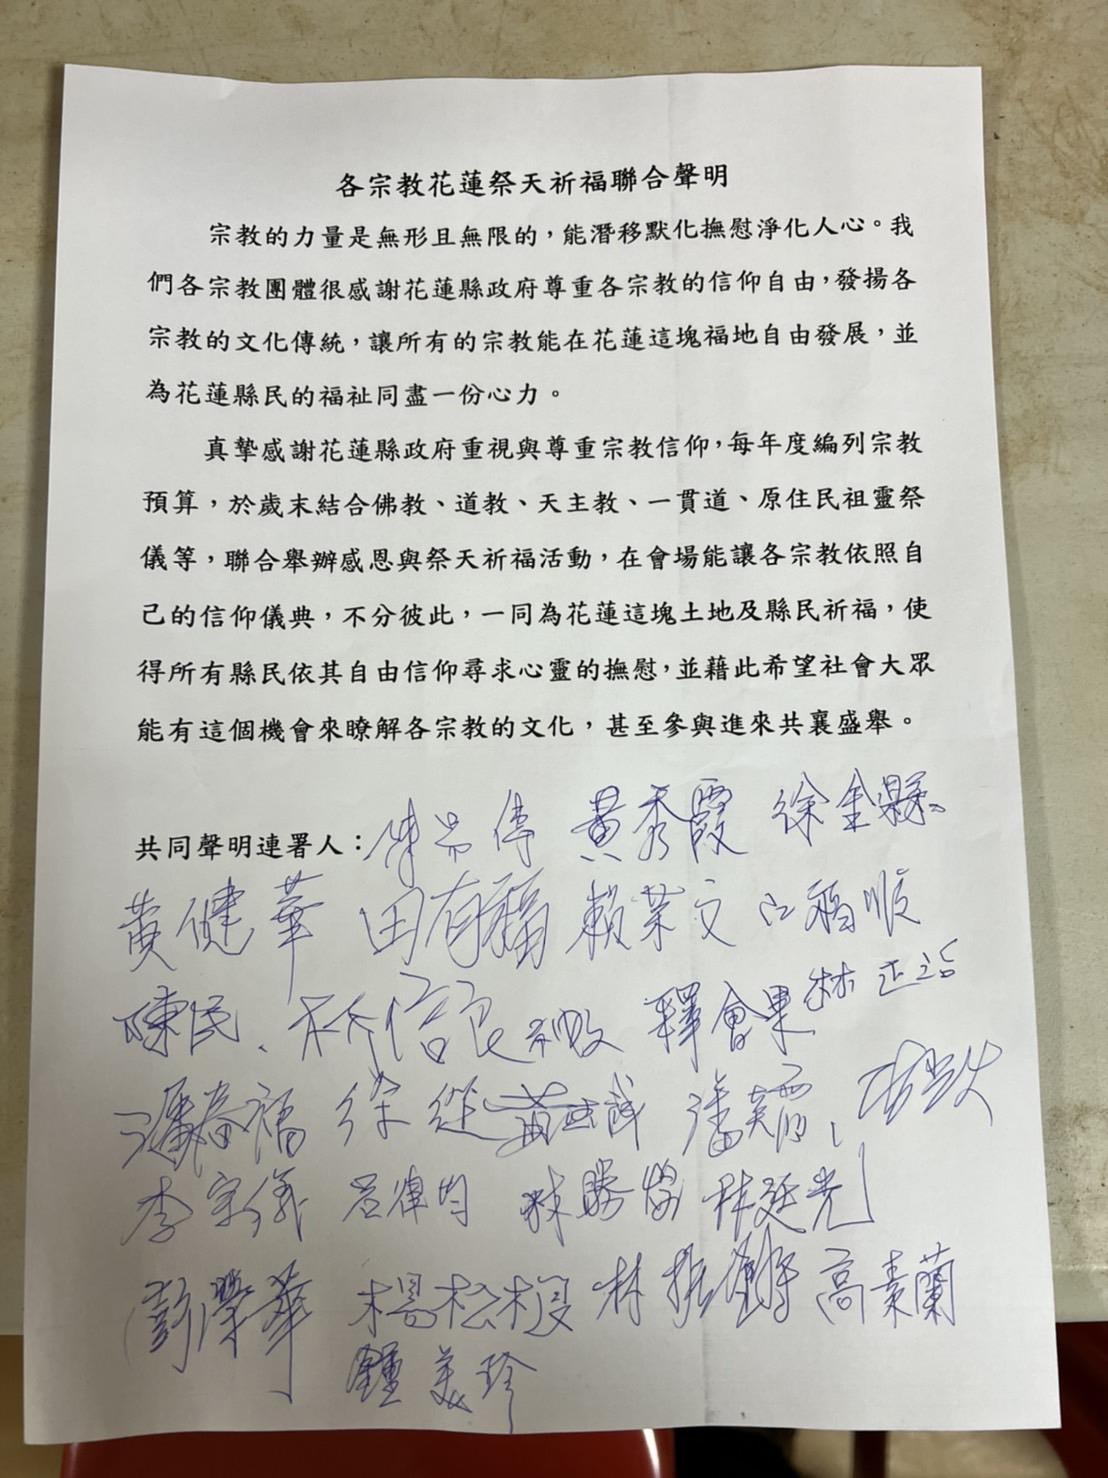 各宗教花蓮祭天祈福聯合聲明
宗教的力量是無形且無限的，能潛移默化撫慰淨化人心。我
們各宗教團體很感謝花蓮縣政府尊重各宗教的信仰自由，發揚各
宗教的文化傳統，讓所有的宗教能在花蓮這塊福地自由發展，並
為花蓮縣民的福祉同盡一份心力。
真摯感謝花蓮縣政府重視與尊重宗教信仰，每年度編列宗教
預算，於歲末結合佛教、道教、天主教、一貫道、原住民祖靈祭
儀等，聯合舉辦感恩與祭天祈福活動，在會場能讓各宗教依照自
己的信仰儀典，不分彼此，一同為花蓮這塊土地及縣民祈福，使
得所有縣民依其自由信仰尋求心靈的撫慰，並藉此希望社會大眾
能有這個機會來瞭解各宗教的文化，甚至參與進來共襄盛舉。
共同聲明連署人： 黃秀霞 徐金縣
黃健華 田有福 賴葉文 江福順
陳民、 釋會果
馮春福
李宗儀 呂律均 林廷光
彭澤華 高素蘭
鍾美珍